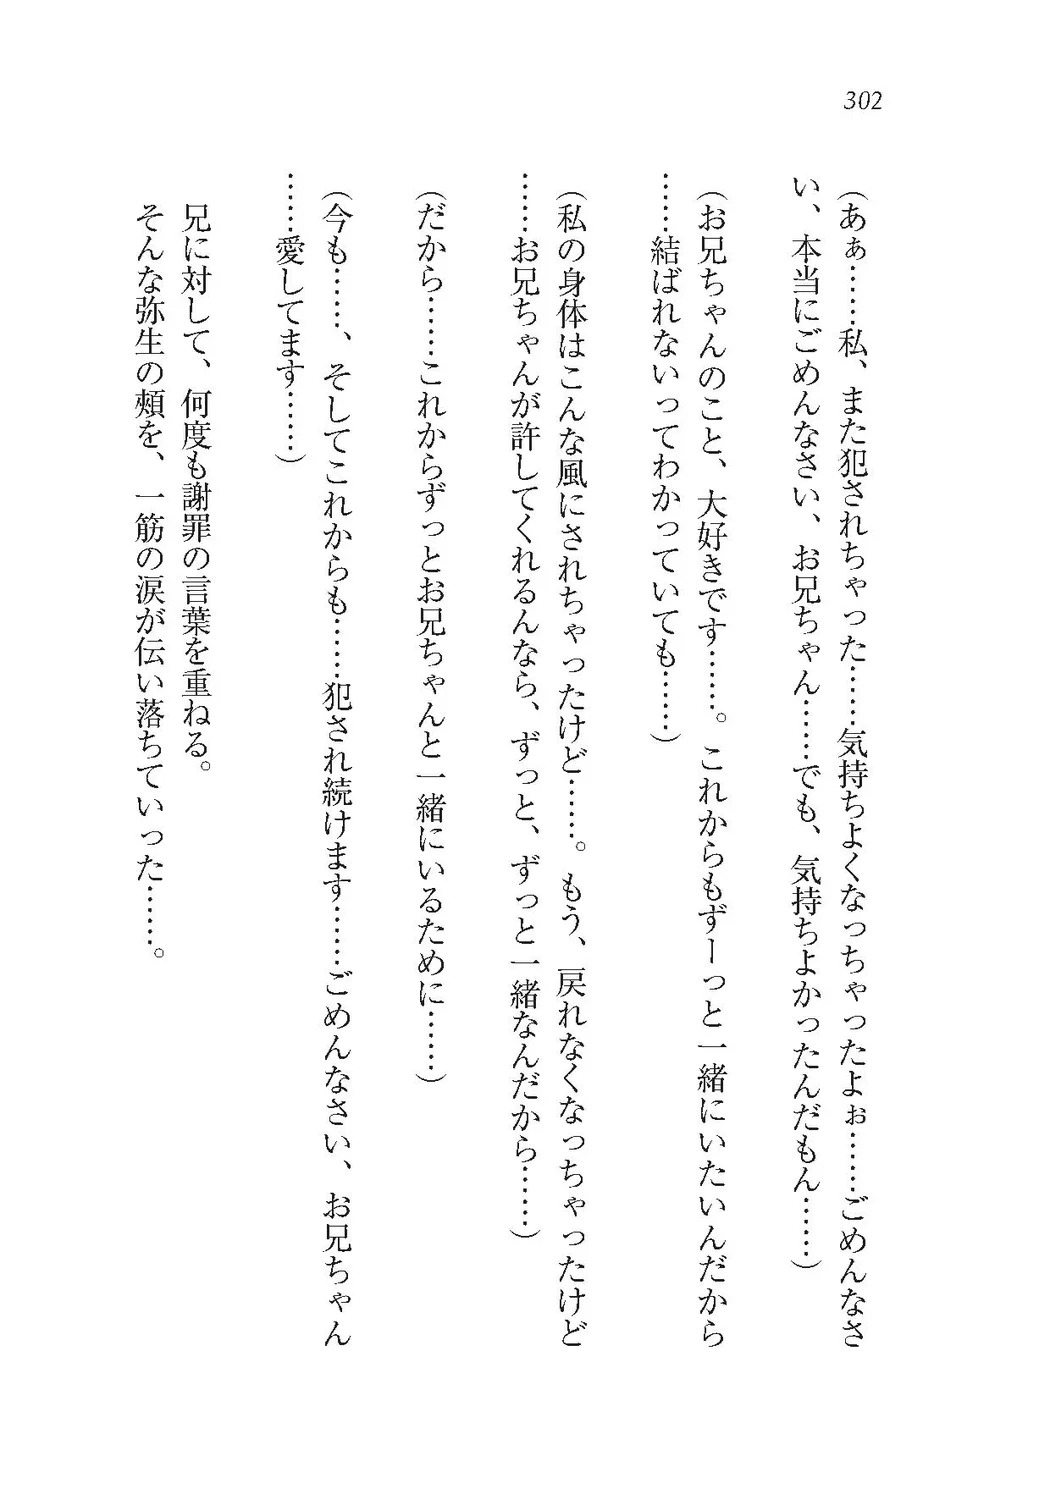 302
(あぁ……私、また犯されちゃった……気持ちよくなっちゃったよぉ……ごめんなさ
い、本当にごめんなさい、お兄ちゃん……でも、気持ちよかったんだもん……)
(お兄ちゃんのこと、大好きです……。これからもずーっと一緒にいたいんだから
……結ばれないってわかっていても……)
(私の身体はこんな風にされちゃったけど……。もう、戻れなくなっちゃったけど
……お兄ちゃんが許してくれるんなら、ずっと、ずっと一緒なんだから……)
(だから……これからずっとお兄ちゃんと一緒にいるために……)
(今も……、そしてこれからも……犯され続けます……ごめんなさい、お兄ちゃん
……愛してます……)
兄に対して、何度も謝罪の言葉を重ねる。
そんな弥生の頰を、一筋の涙が伝い落ちていった……。